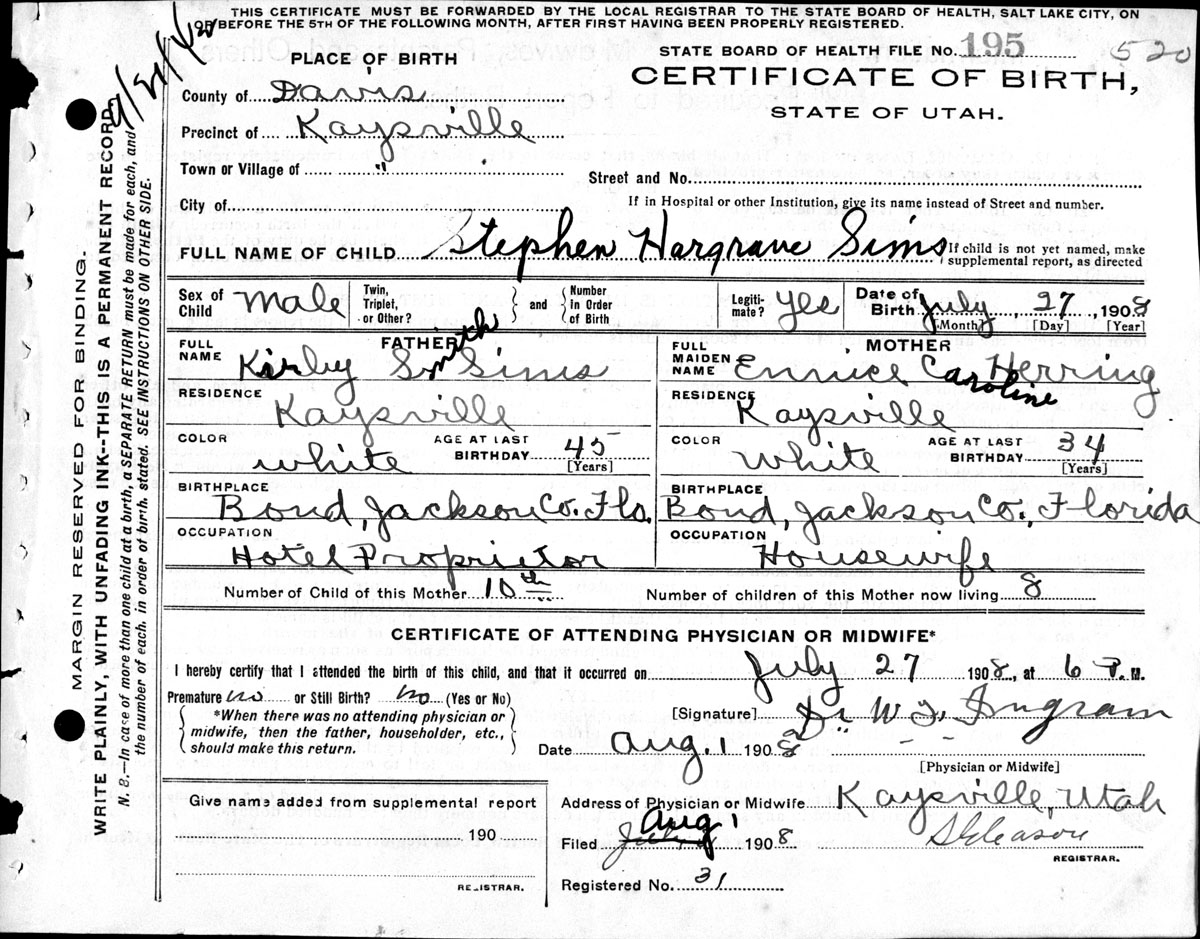 THIS CERTIFICATE MUST BE FORWARDED BY THE LOCAL REGISTRAR TO THE STATE BOARD OF HEALTH, SALT LAKE CITY, ON
OR BEFORE THE 5TH OF THE FOLLOWING MONTH, AFTER FIRST HAVING BEEN PROPERLY REGISTERED.
STATE BOARD OF HEALTH FILE No. 195 520
PLACE OF BIRTH
CERTIFICATE OF BIRTH,
STATE OF UTAH.
County of Davis
Precinct of Kaysville
Town or Village of "
Street and No.
City of
If in Hospital or other Institution, give its name instead of Street and number.
FULL NAME OF CHILD Stephen Hargrave Sims
If child is not yet named, make
supplemental report, as directed
Sex of Child Male
Twin, Triplet, or Other?
and
Number in Order of Birth
Legiti-mate? yes
Date of Birth July 27, 1908
[Month] [Day] [Year]
FATHER
FULL NAME Kirby Smith Sims
RESIDENCE Kaysville
COLOR white
AGE AT LAST BIRTHDAY 45
[Years]
BIRTHPLACE Bond, Jackson Co. Fla.
OCCUPATION Hotel Proprietor
MOTHER
FULL MAIDEN NAME Ennice Caroline Herring
RESIDENCE Kaysville
COLOR White
AGE AT LAST BIRTHDAY 34
[Years]
BIRTHPLACE Bond, Jackson Co., Florida
OCCUPATION Housewife
Number of Child of this Mother 10th
Number of children of this Mother now living 8
CERTIFICATE OF ATTENDING PHYSICIAN OR MIDWIFE*
I hereby certify that I attended the birth of this child, and that it occurred on July 27 1908, at 6 P. M.
Premature no or Still Birth? no (Yes or No)
*When there was no attending physician or
midwife, then the father, householder, etc.,
should make this return.
[Signature] Dr W. T. Ingram
Date Aug. 1 1908
[Physician or Midwife]
Give name added from supplemental report
190
REGISTRAR.
Address of Physician or Midwife Kaysville, Utah
Filed Aug 1 1908
Gleason
REGISTRAR.
Registered No. 31
MARGIN RESERVED FOR BINDING.
WRITE PLAINLY, WITH UNFADING INK--THIS IS A PERMANENT RECORD
N. B.—In case of more than one child at a birth, a SEPARATE RETURN must be made for each, and
the number of each, in order of birth, stated. SEE INSTRUCTIONS ON OTHER SIDE.